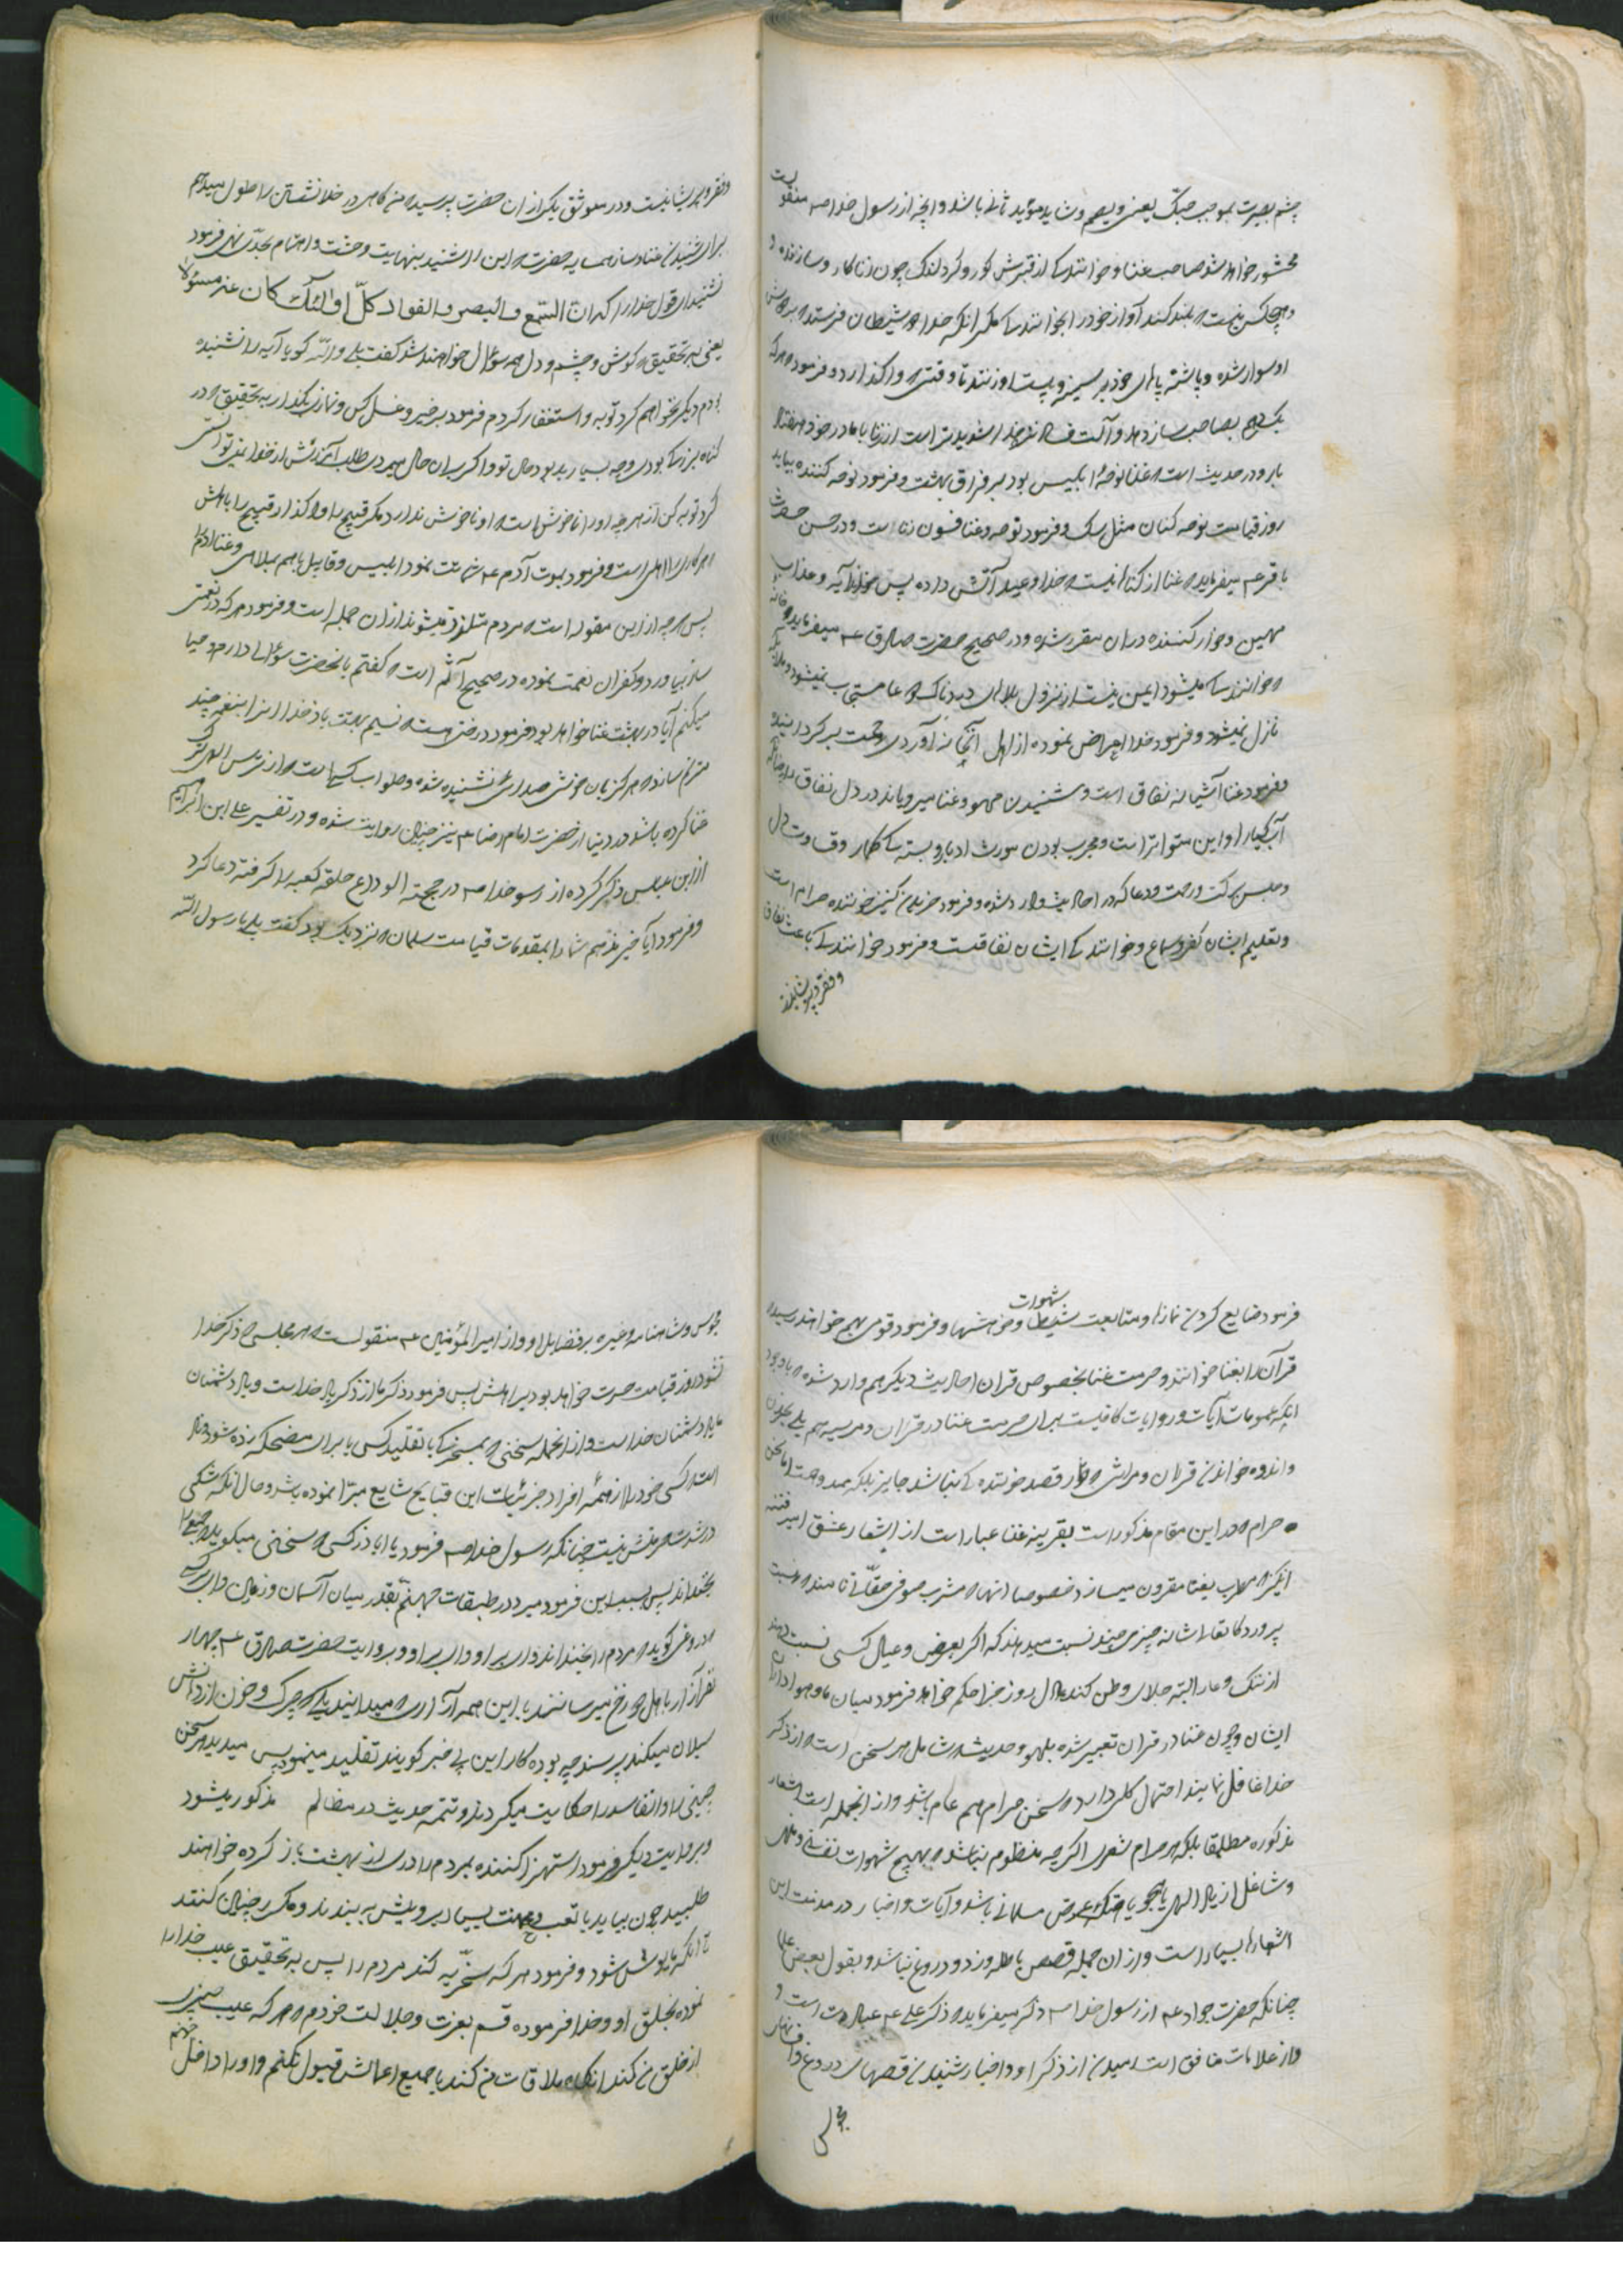 چشم بصیرت بموجب حبّک یعنی ویصم و شاید مؤید ثانی باشد و انچه از رسول خدا ص منقولست
محشور خواهد شد صاحب غنا و خوانندگی از قبرش کور و کر و لنگ چون زناکار و سازنده و
و هیچکس نیست که بلند کند آواز خود را بخوانندگی مگر انکه خدا دو شیطان فرستد که بر دوش
او سوار شده و پاشنه پاهای خود بر سینه و پشت او زنند تا وقتی که واگذارد و فرمود هر که
یکدرهم بصاحب ساز دهد و آلت شدیدتر است از زنا با مادر خود هفتاد
بار و در حدیث است که غنا نوحهٔ ابلیس بود بر فراق بهشت و فرمود نوحه کننده بیاید
روز قیامت نوحه کنان مثل سک و فرمود نوحه و غنا فسون زنا است و در حسن حضرت
باقر ع میفرماید که غنا از کناهانیست که خدا وعید آتش داده پس خواند آیه و عذاب
مهین و خوار کننده در ان مقرر شده و در صحیح حضرت صادق ع میفرماید خانه
که خوانندگی میشود ایمن نیست از نزول بلاهای دردناک و دعا مستجاب نمیشود و ملائکه
نازل نمیشود و فرمود خدا اعراض نموده از اهل آنجا نه آوردی رحمت بر کردانیده
و فرمود غنا آشیانه نفاق است و شنیدن لهو و غنا میرویاند در دل نفاق را چنانکه
آب کیاه را و این متواتر است و مجرب بودن مورث ادبار و بستگی کارها و قساوت دل
و حبس برکت و رحمت و دعا که در احادیث وارد شده و فرمود خریدن کنیز خواننده حرام است
و تعلیم ایشان کفر و سماع و خوانندگی ایشان نفاقست و فرمود خوانندگی باعث نفاق
و فقر و پریشانیست
و فقر و پریشانیست و در موثق یکی از ان حضرت پرسید من کاهی در خلا نشستن را طول میدهم
برای شنیدن غنا و ساز همسایه حضرت این را شنید بنهایت وحشت و اهتمام بجدّ نهی فرمود
نشنیدی قول خدا را که ان السّمع و البصر و الفواد کلّ اولئک کان عنه مسئولا
یعنی به تحقیق که کوش و چشم و دل همه سؤال خواهند شد کفت بلی والله کویا آیه را نشنیده
بودم دیکر نخواهم کرد توبه و استغفار کردم فرمود برخیز و غسل کن و نماز بکذار به تحقیق که در
کناه بزرکی بودی و چه بسیار بد بود حال تو و اکر بران حال میمردی طلب آمرزش از خدا نمی توانستی
کرد توبه کن از هر چه او را ناخوش است که او ناخوش ندارد مکر قبیح را و واکذار قبیح را باهلش
هر کاری را اهلی است و فرمود بموت آدم ع شماتت نمود ابلیس و قابیل باهم بملاهی و غنا
پس هر چه از این مقوله است که مردم متلذذ میشوند از ان جمله است و فرمود هر که در نعمتی
ساز بیاورد و کفران نعمت نموده در صحیح است که کفتم بانحضرت سؤالی دارم و حیا
میکنم آیا در بهشت غنا خواهد بود فرمود درختی هست که نسیم بهشت باذن خدا انرا بنغمه چند
مترنم سازد که هرکز بان خوشی صدایی نشنیده شده و ثواب کسیست که از ترس الهی ترک
غنا کرده باشد در دنیا از حضرت امام رضا ع نیز چنین روایت شده و در تفسیر علی ابن ابراهیم
از ابن عباس ذکر کرده از رسول خدا ص در حجة الوداع حلقه کعبه را کرفته دعا کرد
و فرمود ایا خبر ندهم شما را بمقدمات قیامت سلمان که نزدیک بود کفت بلی یا رسول الله
فرمود ضایع کردن نمازها و متابعت شهوات شیطان و خواهشها و فرمود قومی بهم خواهند رسید که
قرآن را بغنا خوانند و حرمت غنا بخصوص قران احادیث دیکر هم وارد شده با وجود
انکه عمومات آیات و روایات کافیست برای حرمت غنا در قران و مرثیه هم بلی بحزن
و اندوه خواندن قران و مراثی که قصد خوانندگی نباشد جایز بلکه ممدوحست اما سخن
حرام که در این مقام مذکور است بقرینه غنا عبارت است از اشعار عشق آمیز فتنه
انکیز که مطرب بغنا مقرون میسازد خصوصا انها که مشرب صوفی حقّانی نامند که نسبت
پروردکار تعالی شانه چیزی چند نسبت میدهند که اکر بعرض و عیال کسی نسبت دهند
از ننک و عار البته جلای وطن کند حال روز جزا حکم خواهد فرمود میان ما و هواداران
ایشان و چون غنا در قران تعبیر شده بلهو و حدیث که شامل هر سخن است که از ذکر
خدا غافل نماید احتمال کلی دارد که سخن حرام هم عام باشد و از انجمله است اشعار
مذکوره مطلقا بلکه هر حرام شعری اکر چه منظوم نباشد که مهیج شهوات نفسانی و ملهی
و شاغل از یاد الهی یا هجو یا هتک عرض مسلمانی باشد و آیات و اخبار در مذمت این
اشعارها بسیار است و از ان جمله قصص باطله و زد و دروغ نباشد و بقول بعض علما
چنانکه حضرت جواد ع از رسول خدا ص ذکر میفرماید که ذکر علی ع عبادتست و
و از علامات منافق است رمیدن از ذکر او و اختیار شنیدن قصهای دروغ و افسانهای
مجوس
مجوس و شاهنامه و غیره بر فضایل او و از امیر المؤمنین ع منقولست که هر مجلسی که ذکر خدا
نشود روز قیامت حسرت خواهد بود بر اهلش پس فرمود ذکر ما از ذکر یاد خداست و یاد دشمنان
ما یاد دشمنان خداست و از انجمله سخنی که بمسخرگی یا تقلید کسی یا برای مضحکه زده شود و نادر
است کسی خود را از همهٔ افراد جزئیات این قبایح شایع مبرّا نموده باشد و حال انکه شکی
در شدت حرمتش نیست چنانکه رسول خدا ص فرمود یا اباذر کسی که سخنی میکوید که جمعی را
بخنداند پس بسبب این فرو میرود در طبقات جهنّم بقدر میان آسمان و زمین وای بر کسی که
دروغی کوید که مردم را بخنداند وای بر او وای بر او و بروایت حضرت صادق ع چهار
نفر آزار باهل دوزخ میرسانند با این همه آزاری که میدانید یکی که چرک و خون از دهانش
سیلان میکند پرسند چه بوده کار این بی خبر کویند تقلید مینمود پس میدید هر سخن
چنینی را و انفاسد را حکایت میکردند و تتمه حدیث در مظالم مذکور میشود
و بروایت دیکر فرمود استهزا کننده بمردم را دری از بهشت باز کرده خواهند
طلبید چون بیاید با تعب و محنت بسیار برویش به بندند و مکرر چنین کنند
تا انکه مایوس شود و فرمود هر که سخریه کند مردم را پس به تحقیق عیب خدا را
نموده بخلق او و خدا فرموده قسم بعزت و جلالت خودم که هر که عیب چیزی
از خلق من کند انکاه ملاقات من کند با جمیع اعمالش قبول نکنم و او را داخل جهنم